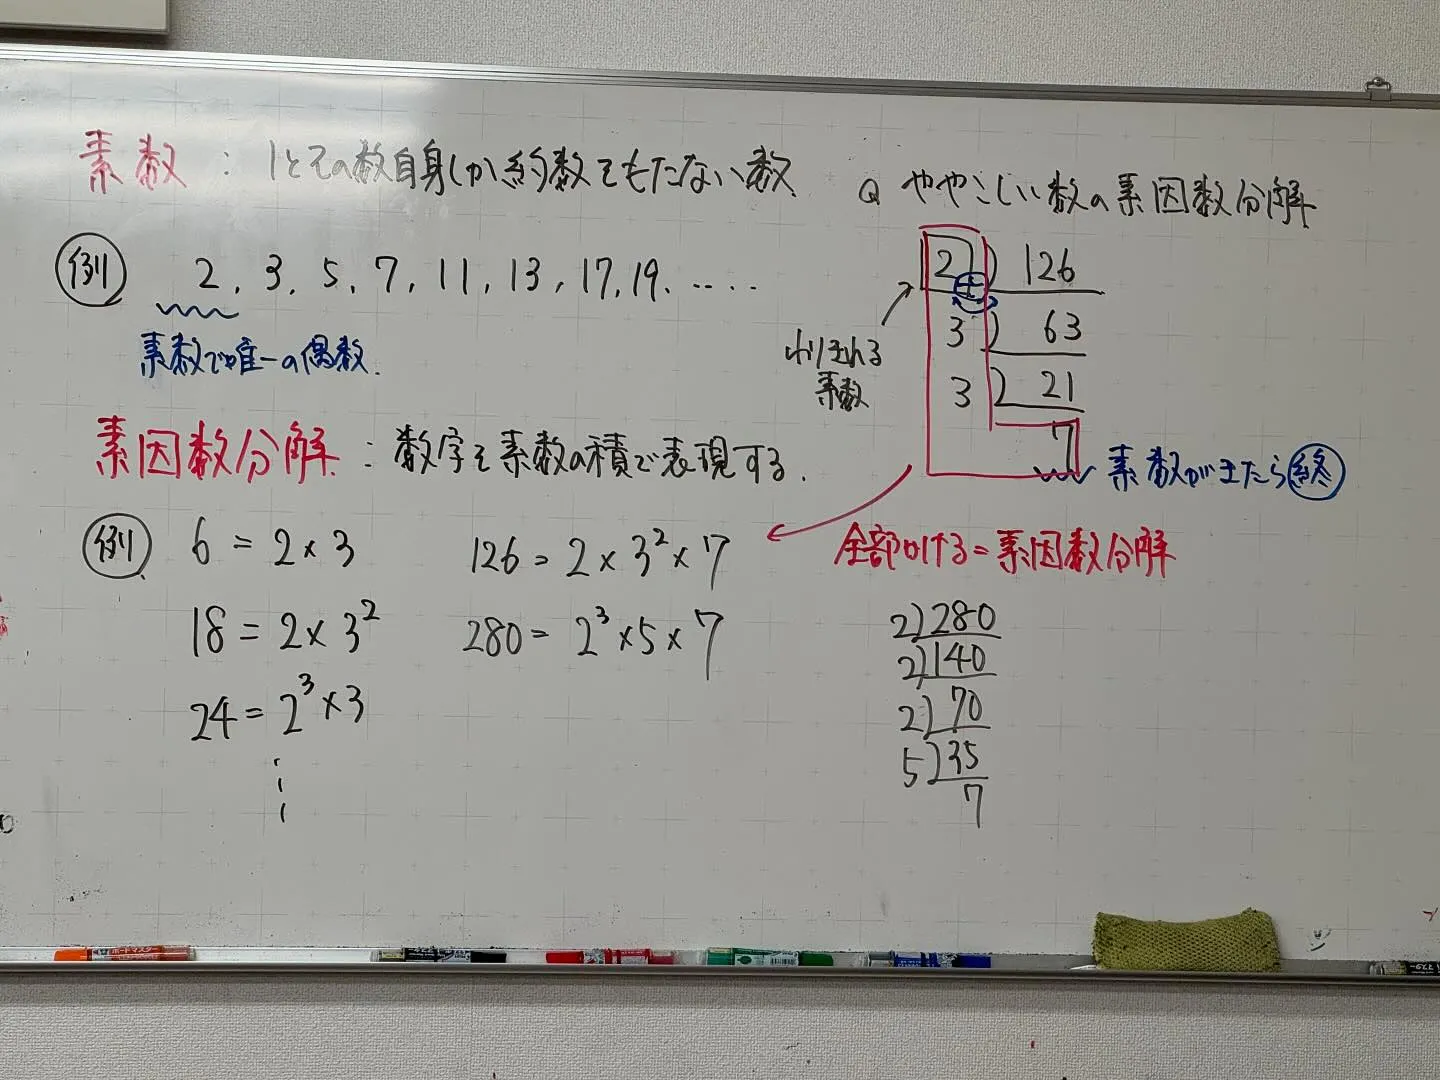 素数：1とその数自身しか約数をもたない数
例 2, 3, 5, 7, 11, 13, 17, 19, ‥‥
素数で唯一の偶数.
素因数分解：数字を素数の積で表現する.
例 6 = 2 × 3
18 = 2 × 3²
24 = 2³ × 3
126 = 2 × 3² × 7
280 = 2³ × 5 × 7
Q ややこしい数の素因数分解
2) 126
3) 63
3) 21
7
わりきれる
素数
素数がきたら終
全部かける=素因数分解
2) 280
2) 140
2) 70
5) 35
7